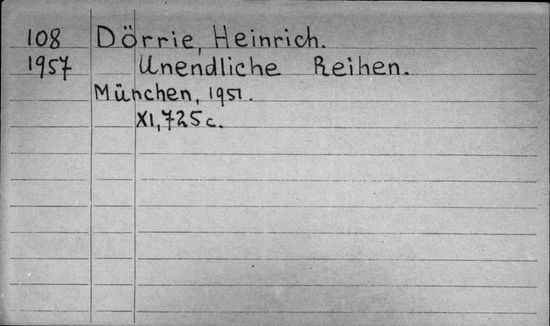 108 Dörrie, Heinrich.
1957 Unendliche Reihen.
München, 1951.
XI, 725 c.